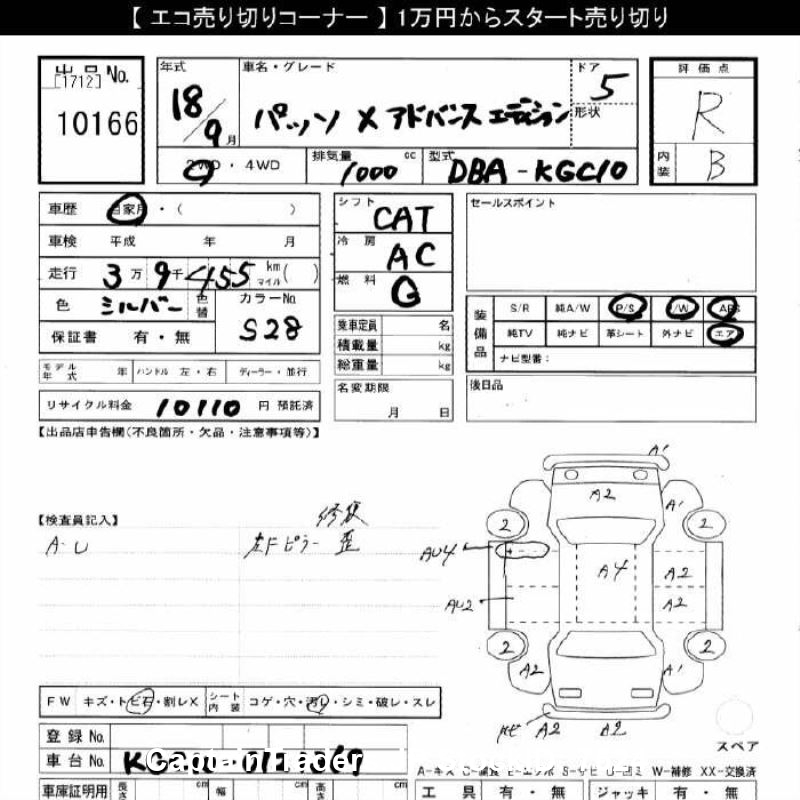 【 エコ売り切りコーナー 】1万円からスタート売り切り
出品 No.
[1712]
10166
年式
18/9月
車名・グレード
パッソ X アドバンスエディション
ドア
5
形状
評価点
R
内装
B
2WD・4WD
排気量
1000 cc
型式
DBA-KGC10
車歴 自家用・( )
車検 平成 年 月
走行 3万 9千 455 km マイル ( )
色 シルバー 色替
カラーNo.
S28
保証書 有・無
モデル年式 年 ハンドル 左・右 ディーラー・並行
リサイクル料金 10110 円 預託済
シフト
CAT
冷房
AC
燃料
G
乗車定員 名
積載量 kg
総重量 kg
名変期限
月 日
セールスポイント
装備品
S/R 純A/W P/S P/W ABS
純TV 純ナビ 革シート 外ナビ エア
ナビ型番：
後日品
【出品店申告欄(不良箇所・欠品・注意事項等)】
【検査員記入】
A-U
修復
左Fピラー 歪
A'
A2
A'
2
2
AU4
A4
A2
AU2
A2
2
2
A2
A'
A2
A2
スペア
FW キズ・トビ石・割レX シート内装 コゲ・穴・汚レ・シミ・破レ・スレ
登録 No.
車台 No.
CaptainTrader
A-キズ W-補修 XX-交換済
車庫証明用 長さ cm 幅 cm 高さ cm
工具 有・無 ジャッキ 有・無